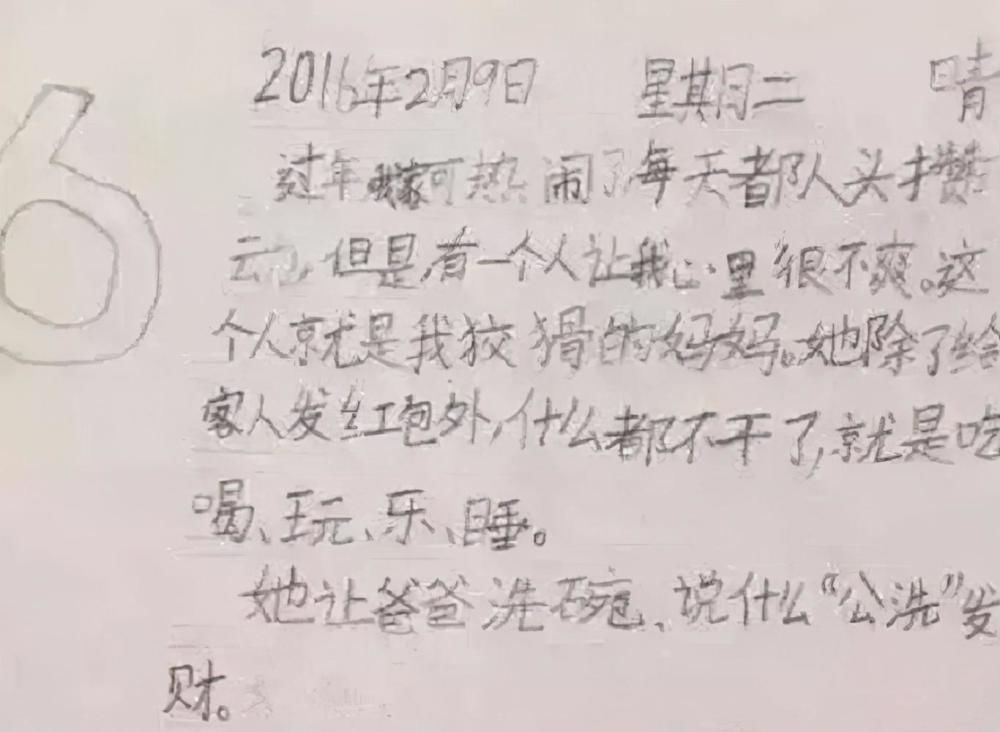 6
2016年2月9日 星期二 晴
过年我家可热闹了,每天都人头攒
动,但是,有一个人让我心里很不爽。这
个人就是我狡猾的妈妈。她除了给
客人发红包外,什么都不干了,就是吃
喝、玩、乐、睡。
她让爸爸洗碗、说什么“公洗”发
财。